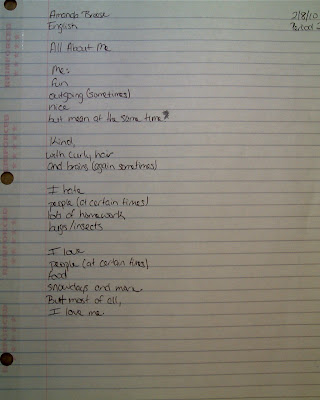 Amanda Breese 2/8/10
English Block 2
All About Me
Me:
fun
outgoing (sometimes)
nice
but mean at the same time?
Kind,
with curly hair
and brains (again sometimes)
I hate
people (at certain times)
lots of homework
bugs/insects
I love
people (at certain times)
food
snowdays and more.
But most of all,
I love me.